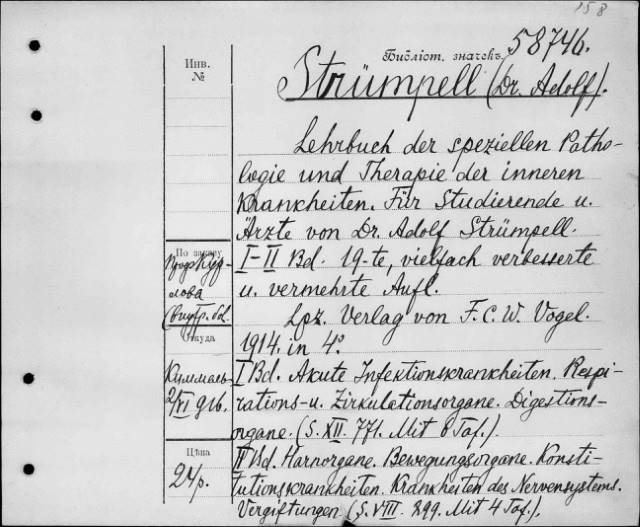 158
Библіот. значекъ 58746.
Инв.
№
Strümpell (Dr. Adolf).
Lehrbuch der speziellen Patho-
logie und Therapie der inneren
Krankheiten. Für Studierende u.
Ärzte von Dr. Adolf Strümpell.
I-II Bd. 19-te, vielfach verbesserte
u. vermehrte Aufl.
Lpz. Verlag von F. C. W. Vogel.
1914. in 4°
I Bd. Akute Infektionskrankheiten. Respi-
rations- u. Zirkulationsorgane. Digestions-
organe. (S. XII. 771. Mit 6 Taf.).
II Bd. Harnorgane. Bewegungsorgane. Konsti-
tutionskrankheiten. Krankheiten des Nervensystems.
Vergiftungen (S. VIII. 899. Mit 4 Taf.).
По заказу
проф. Куд-
лова
Откуда
Киммель
2/VI 916.
Цѣна
24 р.